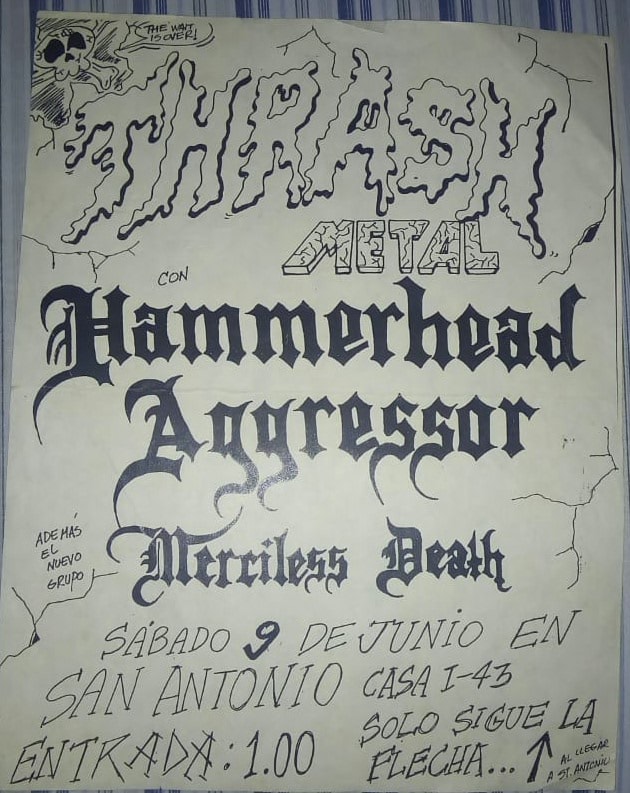 THE WAIT
IS OVER!
THRASH
METAL
CON
Hammerhead
Aggressor
ADEMÁS
EL
NUEVO
GRUPO
Merciless Death
SÁBADO 9 DE JUNIO EN
SAN ANTONIO CASA I-43
ENTRADA: 1.00
SOLO SIGUE LA
FLECHA...
AL LLEGAR
A ST. ANTONIO